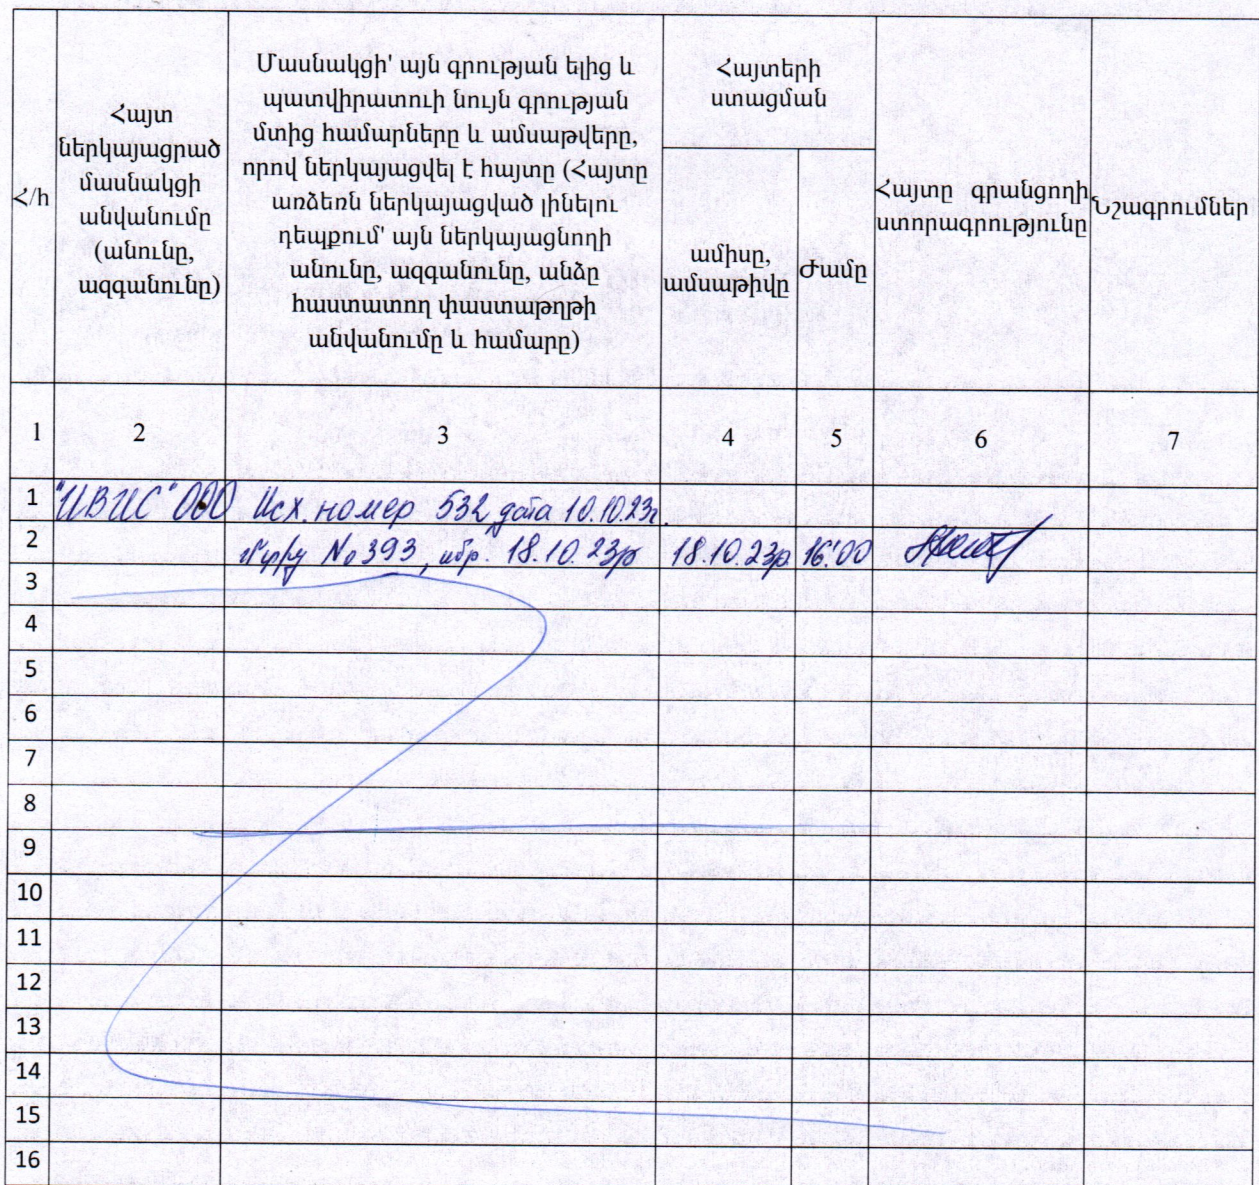 Հ/հ
Հայտ
ներկայացրած
մասնակցի
անվանումը
(անունը,
ազգանունը)
Մասնակցի՝ այն գրության ելից և
պատվիրատուի նույն գրության
մտից համարները և ամսաթվերը,
որով ներկայացվել է հայտը (Հայտը
առձեռն ներկայացված լինելու
դեպքում՝ այն ներկայացնողի
անունը, ազգանունը, անձը
հաստատող փաստաթղթի
անվանումը և համարը)
Հայտերի
ստացման
ամիսը,
ամսաթիվը
Ժամը
Հայտը գրանցողի
ստորագրությունը
Նշագրումներ
1 2 3 4 5 6 7
1 "ИВИС" ООО Исх. номер 532 дата 10.10.23г.
2 №393, 18.10.23թ 18.10.23թ 16:00
3
4
5
6
7
8
9
10
11
12
13
14
15
16